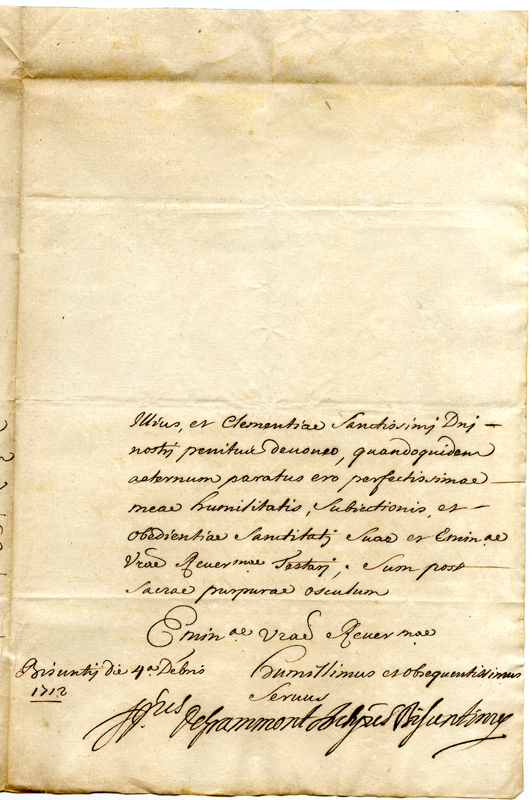 Illius, et Clementiae Sanctissimj Dnj
nostrj penitus devoveo, quandoquidem
aeternum paratus ero perfectissimae
meae humilitatis, Subiectionis, et
obedientiae Sanctitatj Suae et Emin ae
Vrae Rever mae Testarj; Sum post
Sacrae purpurae osculum
Emin ae Vrae Rever mae
Bisuntij die 4.a Xbris
1712
humillimus et obsequentissimus
Servus
de Grammont Archiep̃us Bisuntinus